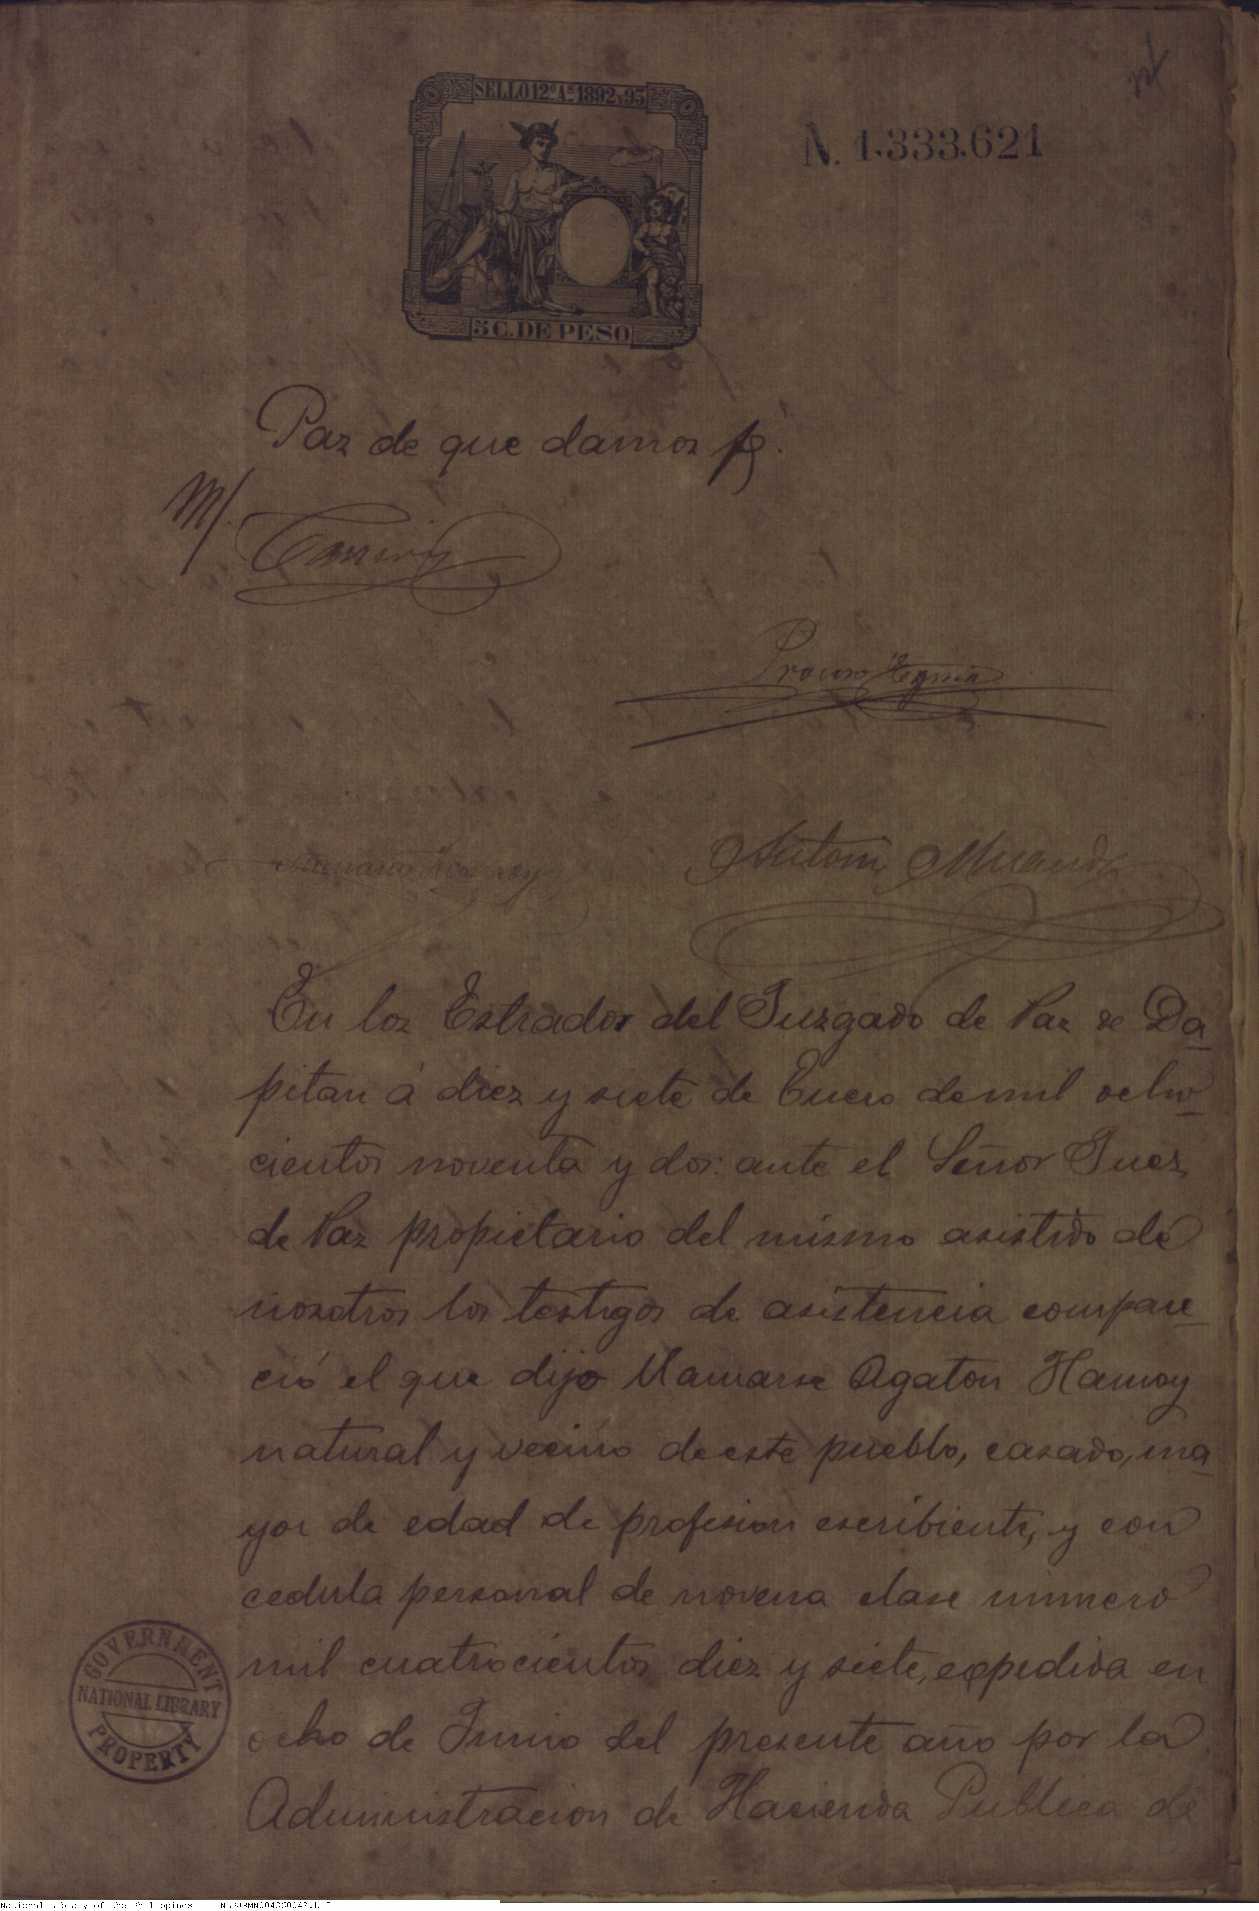 SELLO 12º Aˢ 1892 y 93
N. 1.333.621
5 C. DE PESO
Paz de que damos fé.
M/.
Antonio Miranda
En los Estrados del Juzgado de Paz de Da
pitan á diez y siete de Enero de mil ocho
cientos noventa y dos: ante el Señor Juez
de Paz propietario del mismo asistido de
nosotros los testigos de asistencia compare
ció el que dijo llamarse Agaton Hamoy
natural y vecino de este pueblo, casado, ma
yor de edad de profesion escribiente, y con
cedula personal de novena clase número
mil cuatrocientos diez y siete, expedida en
ocho de Junio del presente año por la
Administracion de Hacienda Publica de
GOVERNMENT
NATIONAL LIBRARY
PROPERTY
National Library of the Philippines